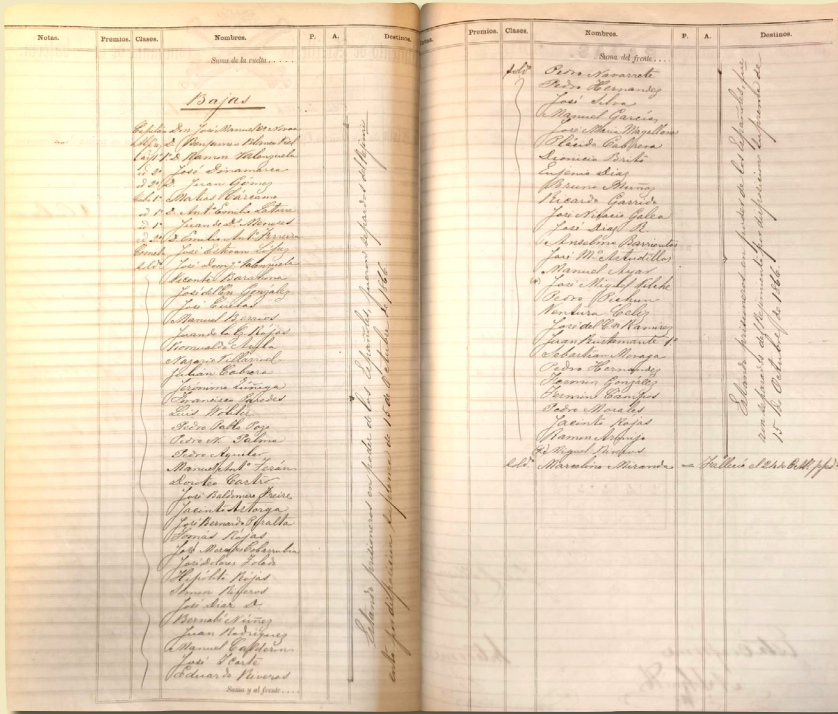 Notas. Premios. Clases. Nombres. P. A. Destinos.
Suma de la vuelta.....
Bajas
Capitan Don José Manuel
D. Benjamin Viel
1º D. Ramon Valenzuela
id 2º José Dinamarca
id 2º D. Juan Gómez
Cabo 1º Matias Cárcamo
id 1º D. Antº Emilio Latorre
id 1º Juan de Dº Meneses
id 2º D. Emilio Antº Ferreira
Corneta José Esteban
Soldº José Domgº Valenzuela
Vicente Barahona
José del Cn González
José Cuevas
Manuel Berrios
Juan de la C. Rojas
Romualdo Avila
Nazario Villarruel
Julian Cabrera
Jerónimo Zúñiga
Francisco Paredes
Luis
Pedro Pablo Pozo
Pedro N. Palma
Pedro
Manuel Antº Terán
Doroteo Castro
José Baldomero Freire
Jacinto Astorga
José Bernardo Peralta
Tomas Rojas
José Mercedes Cobarrubia
José Dolores Toledo
Hipólito Rojas
Simon Riveros
José Diaz D.
Bernabé Núñez
Juan Rodriguez
Manuel Calderon
José Ycarte
Eduardo Riveros
Suma y al frente....
Estando prisioneros en poder de los Españoles, fueron separados del Rejimi
ento por disposicion Suprema de 15 de Octubre de 1866.
Notas. Premios. Clases. Nombres. P. A. Destinos.
Suma del frente....
Soldº Pedro Navarrete
Pedro Hernandez
José Silva
Manuel Garcias
José Maria Magallanes
Plácido Cabrera
Dionicio Brito
Eugenio Diaz
Bruno Muñoz
Ricardo Garrido
José Nicacio Galea
José Diaz R.
Anselmo Barrientos
José Mª Astudillos
Manuel Ayar
José Miguel
Pedro
Ventura Celiz
José del Cn Ramirez
Juan Bustamante 1º
Sebastian Moraga
Pedro Hernandez
Fermin González
Fermin Campos
Pedro Morales
Jacinto Rojas
Ramon Araujo
Miguel
Soldº Marcelino Miranda Falleció el 24 de
Estando prisioneros en poder de los Españoles, fue
ron separados del Rejimiento por disposicion Suprema de
15 de Octubre de 1866.